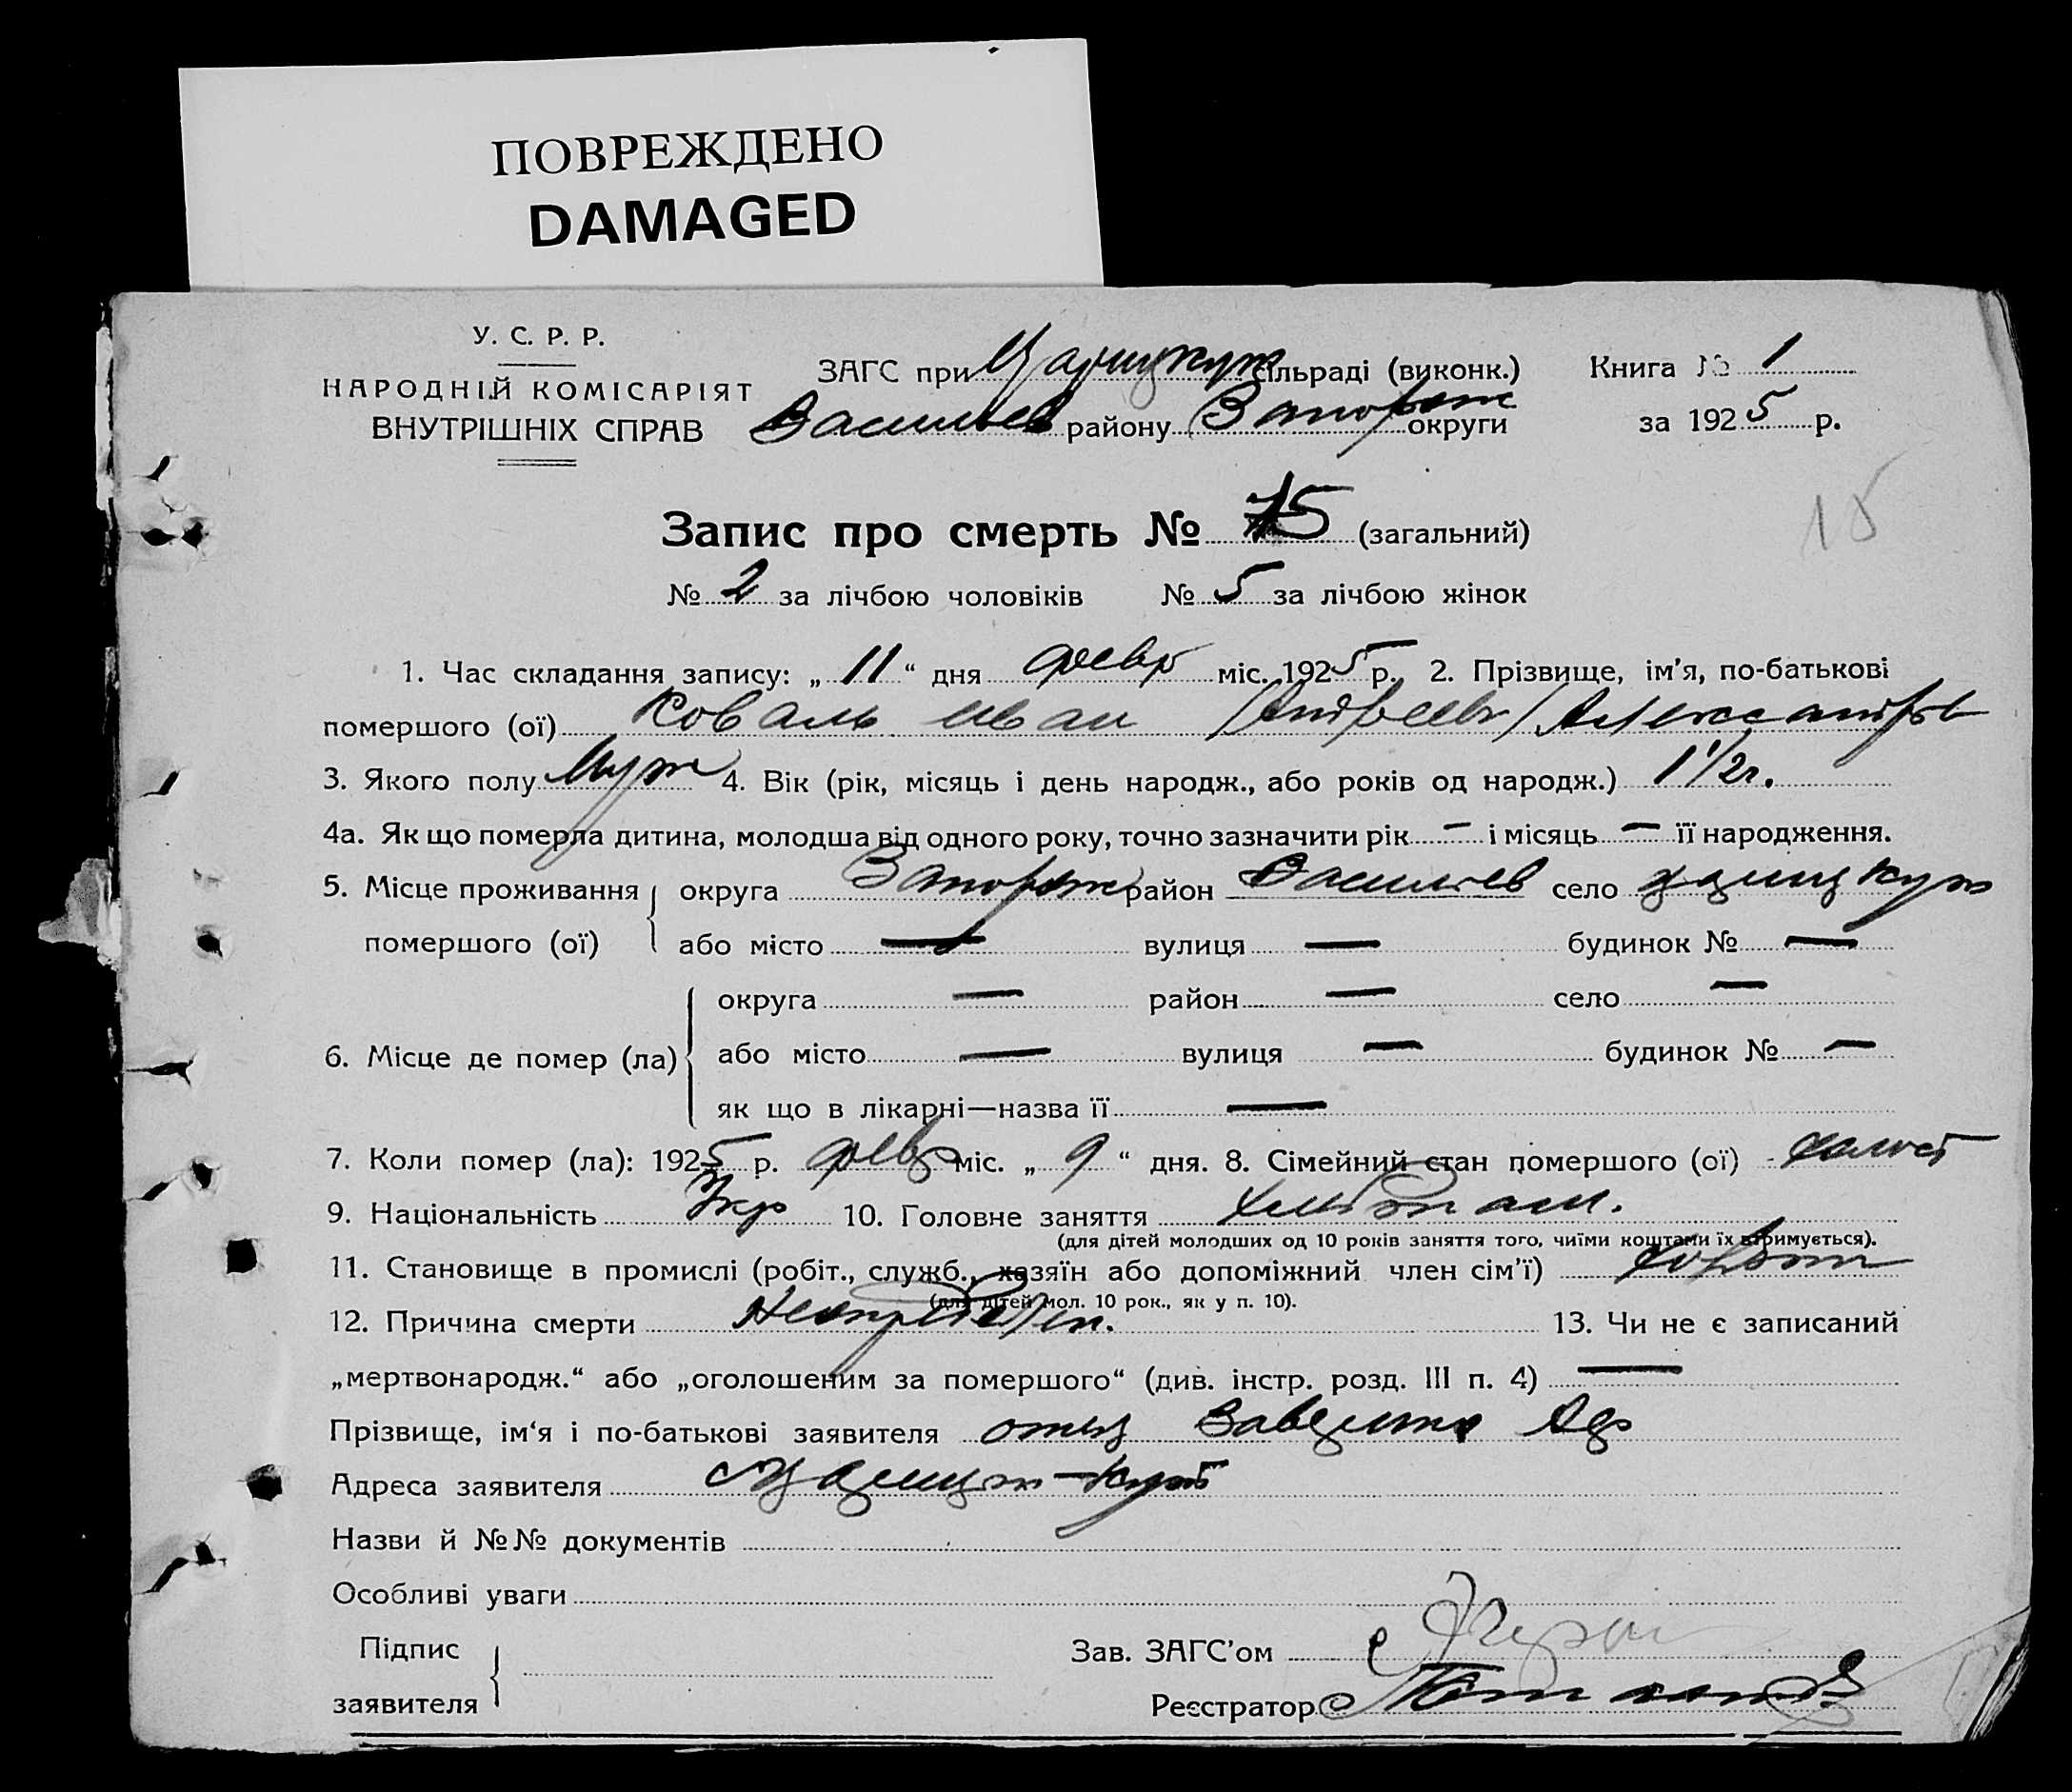 ПОВРЕЖДЕНО
DAMAGED
У. С. Р. Р.
НАРОДНІЙ КОМІСАРІЯТ
ВНУТРІШНІХ СПРАВ
ЗАГС при сільраді (виконк.)
Васильев району Запорож округи
Книга № 1
за 1925 р.
Запис про смерть № 15 (загальний)
15
№ 2 за лічбою чоловіків № 5 за лічбою жінок
1. Час складання запису: „ 11 “ дня февр міс. 1925 р. 2. Прізвище, ім’я, по-батькові
помершого (ої) Коваль Иван /Андреевъ/ Александръ
3. Якого полу Муж 4. Вік (рік, місяць і день народж., або років од народж.) 1 1/2 г.
4а. Як що померла дитина, молодша від одного року, точно зазначити рік — і місяць — її народження.
5. Місце проживання помершого (ої) { округа Запорож район Васильев село
або місто — вулиця — будинок № —
6. Місце де помер (ла) { округа — район — село —
або місто — вулиця — будинок № —
як що в лікарні—назва її —
7. Коли помер (ла): 1925 р. февр міс. „ 9 “ дня. 8. Сімейний стан помершого (ої) холост
9. Національність Укр 10. Головне заняття хлібопаш.
(для дітей молодших од 10 років заняття того, чиїми коштами їх втримується).
11. Становище в промислі (робіт., служб., хазяїн або допоміжний член сім’ї)
(для дітей мол. 10 рок., як у п. 10).
12. Причина смерти Неопределен. 13. Чи не є записаний
„мертвонародж.“ або „оголошеним за помершого“ (див. інстр. розд. III п. 4) —
Прізвище, ім‘я і по-батькові заявителя отец
Адреса заявителя
Назви й №№ документів
Особливі уваги
Підпис
заявителя
Зав. ЗАГС’ом
Реєстратор